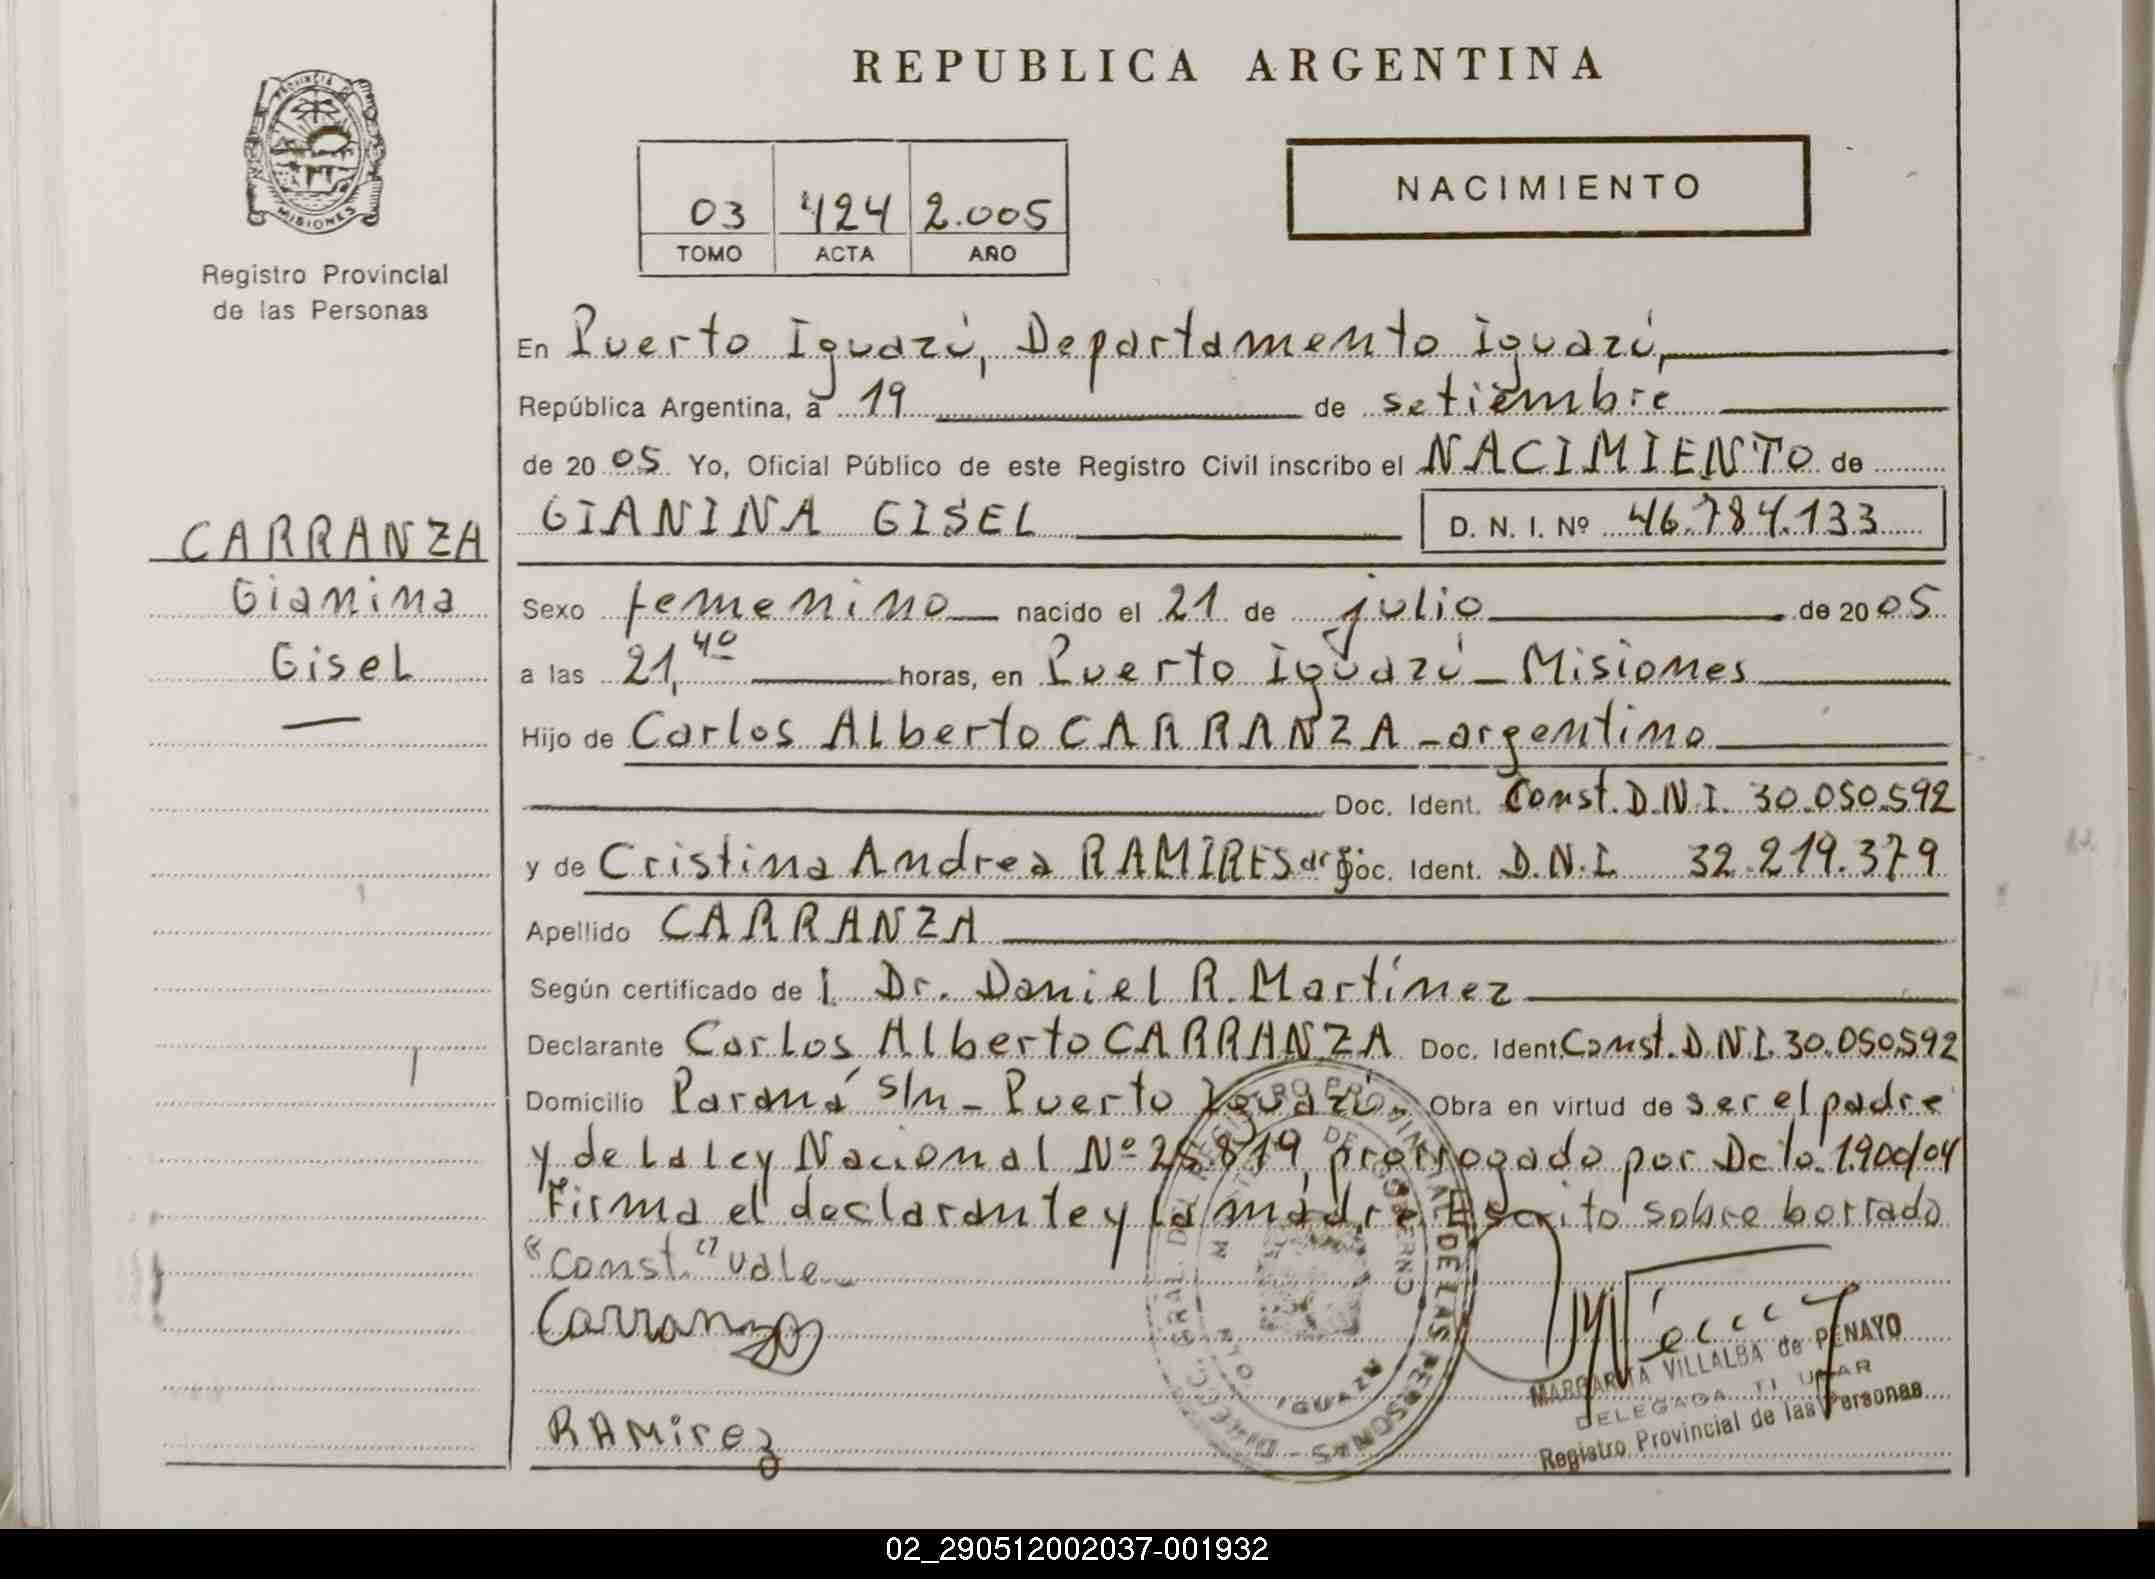 REPUBLICA ARGENTINA
PROVINCIA DE
MISIONES
Registro Provincial
de las Personas
NACIMIENTO
03 424 2.005
TOMO ACTA AÑO
En Puerto Iguazú, Departamento Iguazú,
República Argentina, a 19 de setiembre
de 20 05 Yo, Oficial Público de este Registro Civil inscribo el NACIMIENTO de
GIANINA GISEL D. N. I. Nº 46.784.133
CARRANZA
Gianina
Gisel
Sexo femenino nacido el 21 de julio de 20 05
a las 21,40 horas, en Puerto Iguazú - Misiones
Hijo de Carlos Alberto CARRANZA - argentino
Doc. Ident. Const. D.N.I. 30.050.592
y de Cristina Andrea RAMIRES arg. Doc. Ident. D.N.I. 32.219.379
Apellido CARRANZA
Según certificado de l Dr. Daniel R. Martínez
Declarante Carlos Alberto CARRANZA Doc. Ident. Const. D.N.I. 30.050.592
Domicilio Paraná s/n - Puerto Iguazú - Obra en virtud de ser el padre
y de la ley Nacional Nº 25.819, prorrogado por Dcto. 1.900/04
Firma el declarante y la madre Escrito sobre borrado
"Const." vale
Carranza
RAMirez
MARGARITA VILLALBA de PENAYO
DELEGADA TITULAR
Registro Provincial de las Personas
DIRECC. GRAL. DEL REGISTRO PROVINCIAL DE LAS PERSONAS
DE GOBIERNO
IGUAZU
02_290512002037-001932